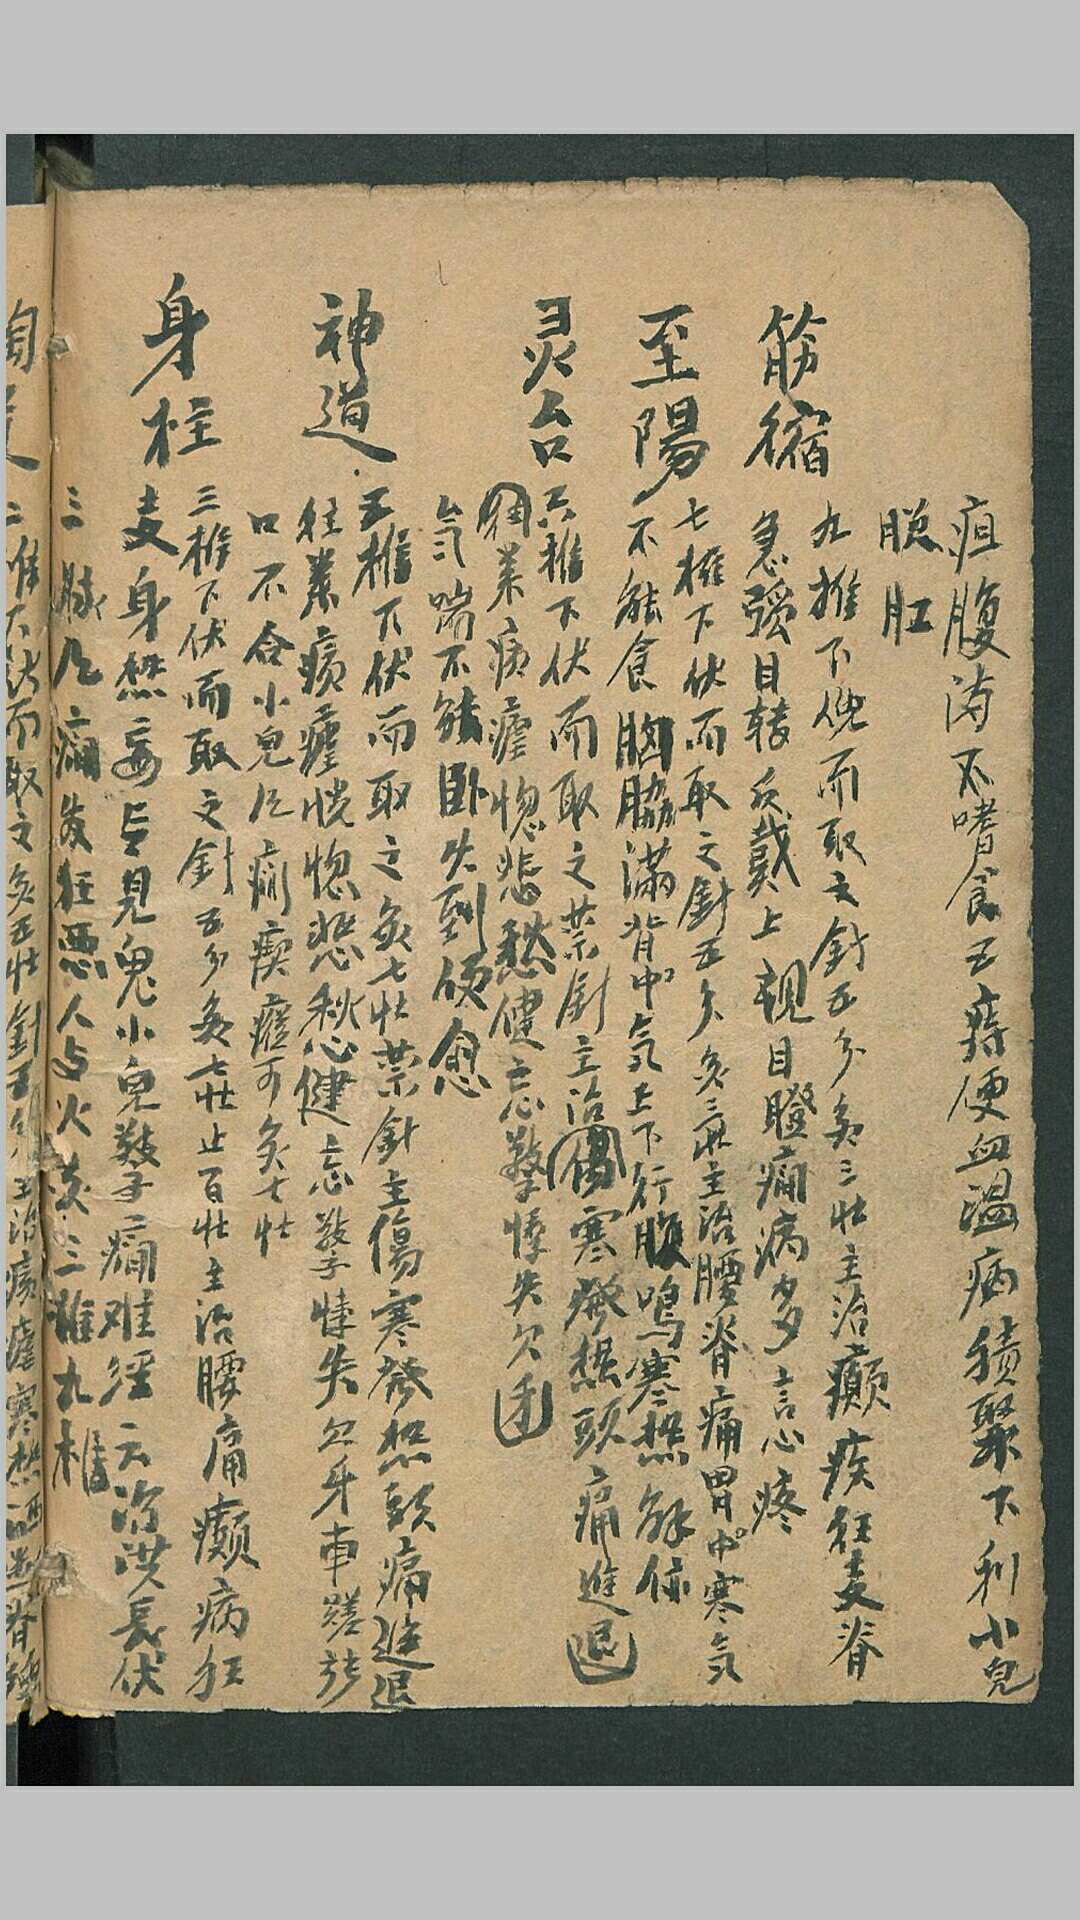 疸腹满不嗜食五痔便血温病積聚下利小兒
脱肛
筋縮
九椎下俛而取之針五分灸三壯主治癲疾狂走脊
急强目转反戴上视目瞪痫病多言心疼
至陽
七椎下伏而取之針五分灸三壯主治腰脊痛胃中寒气
不能食胸脇满背中气上下行腹鳴寒热解㑊
灵台
六椎下伏而取之禁針主治傷寒發热頭痛進退
瘧惚悲愁健忘驚悸失欠
气喘不能卧失到便愈
神道
五椎下伏而取之灸七壯禁針主傷寒發热頭痛進退
往来瘧恍惚悲愁健忘驚悸失欠牙車蹉
口不合小兒凡癎瘈瘲可灸七壯
身柱
三椎下伏而取之針五分灸七壯止百壯主治腰痛癲病狂
走身热妄言見鬼小兒驚痫难經云治洪長伏
三脉凡痫發狂恶人与火灸三椎九椎
二椎下伏而取之灸五壯針五分主治瘧寒热洒淅脊强